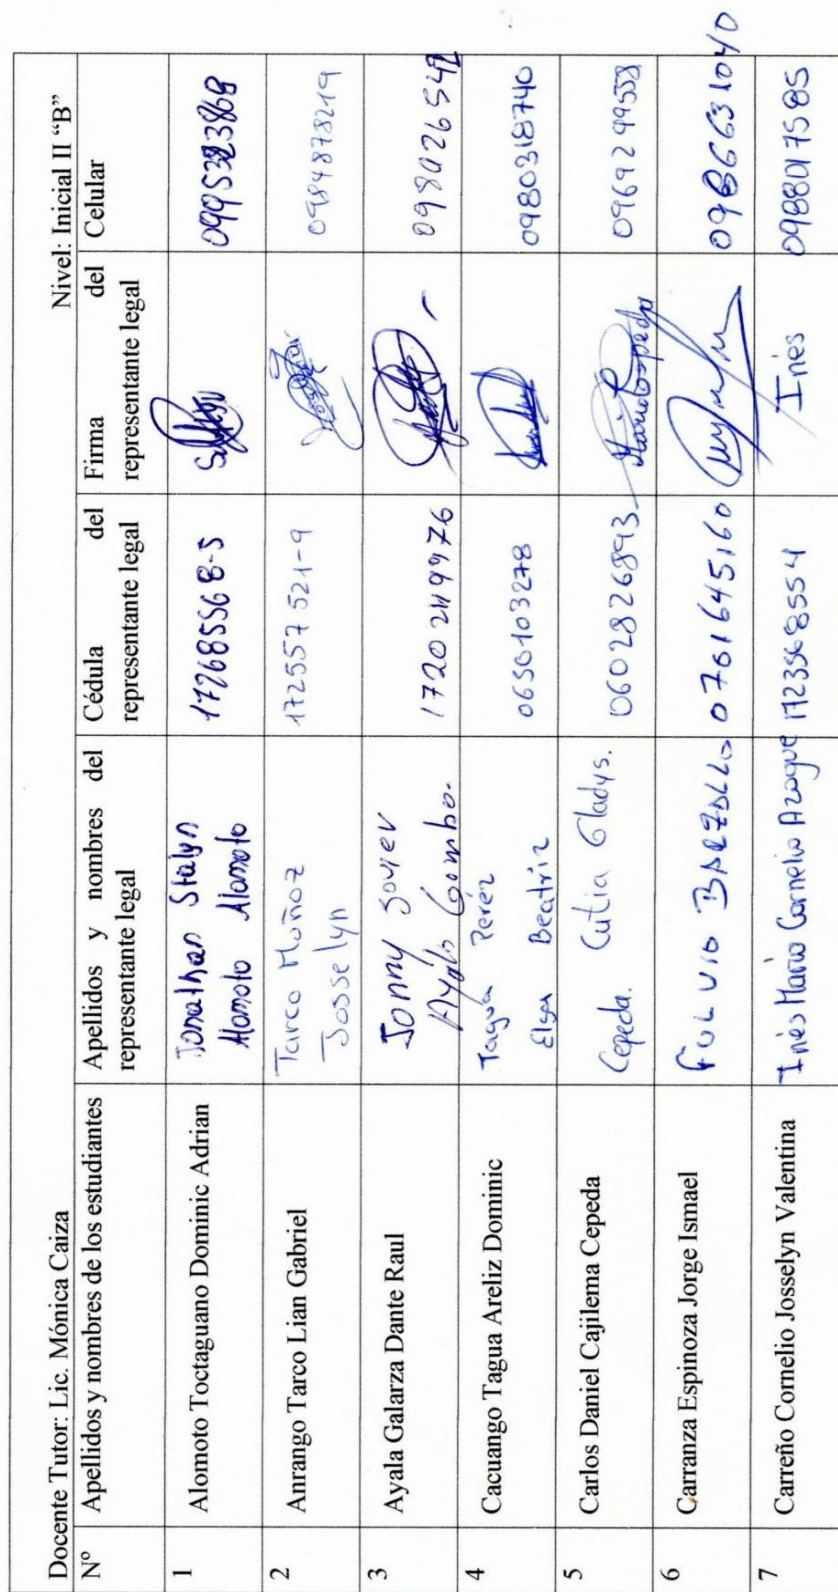 Docente Tutor: Lic. Mónica Caiza Nivel: Inicial II “B”
Nº Apellidos y nombres de los estudiantes Apellidos y nombres del representante legal Cédula del representante legal Firma del representante legal Celular
1 Alomoto Toctaguano Dominic Adrian Jonathan Stalyn Alomoto Alomoto 172685568-5
2 Anrango Tarco Lian Gabriel Tarco Muñoz Josselyn 172557521-9 0984878219
3 Ayala Galarza Dante Raul Jonny Ayala
4 Cacuango Tagua Areliz Dominic Tagua Peréz Elsa Beatriz 0980318740
5 Carlos Daniel Cajilema Cepeda Cepeda. Cutia Gladys. 0602826893 Maria Cepeda 0969299558
6 Carranza Espinoza Jorge Ismael FULVIO 0701645160
7 Carreño Cornelio Josselyn Valentina Inés Maria Cornelio Azogue Inés 0988017585